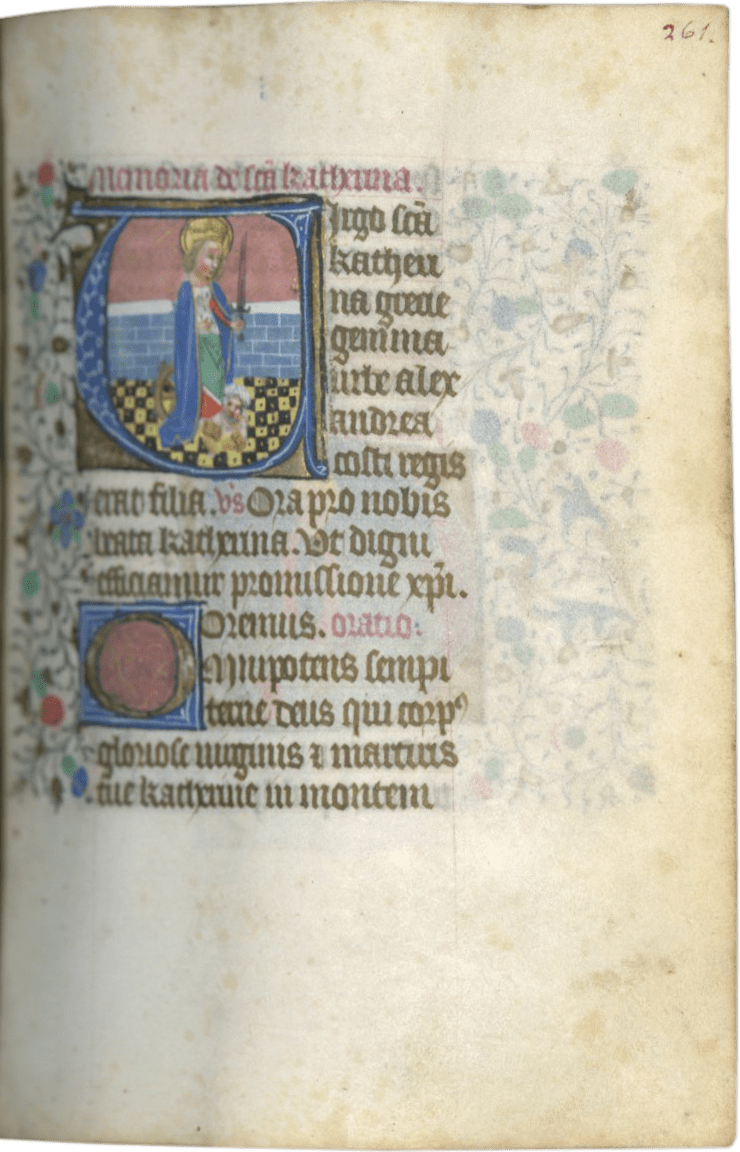 261.
Memoria de scā katherina.
Virgo scā
katheri
na grecie
gemma
urbe alex
andrea
costi regis
erat filia. vs Ora pro nobis
beata katherina. Vt digni
efficiamur promissione xpī.
Oremus. oratio:
Omnipotens sempi
terne deus qui corpꝰ
gloriose uirginis ⁊ martiris
tue katherine in montem